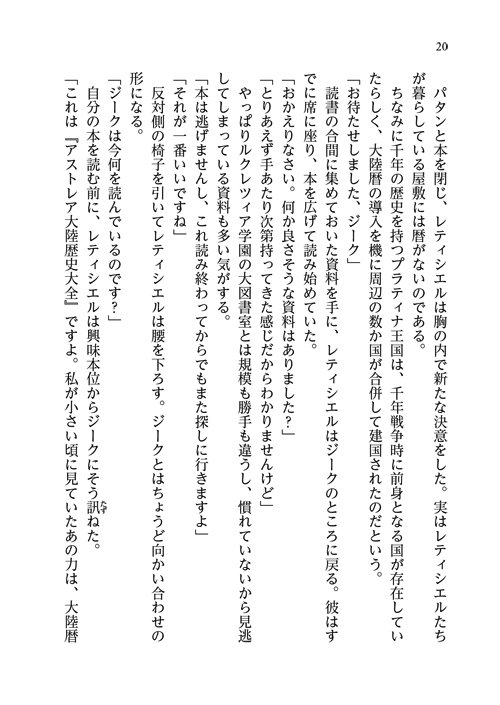 20
パタンと本を閉じ、レティシエルは胸の内で新たな決意をした。実はレティシエルたち
が暮らしている屋敷には暦がないのである。
ちなみに千年の歴史を持つプラティナ王国は、千年戦争時に前身となる国が存在してい
たらしく、大陸暦の導入を機に周辺の数か国が合併して建国されたのだという。
「お待たせしました、ジーク」
読書の合間に集めておいた資料を手に、レティシエルはジークのところに戻る。彼はす
でに席に座り、本を広げて読み始めていた。
「おかえりなさい。何か良さそうな資料はありました？」
「とりあえず手あたり次第持ってきた感じだからわかりませんけど」
やっぱりルクレツィア学園の大図書室とは規模も勝手も違うし、慣れていないから見逃
してしまっている資料も多い気がする。
「本は逃げませんし、これ読み終わってからでもまた探しに行きますよ」
「それが一番いいですね」
反対側の椅子を引いてレティシエルは腰を下ろす。ジークとはちょうど向かい合わせの
形になる。
「ジークは今何を読んでいるのです？」
自分の本を読む前に、レティシエルは興味本位からジークにそう訊たずねた。
「これは『アストレア大陸歴史大全』ですよ。私が小さい頃に見ていたあの力は、大陸暦